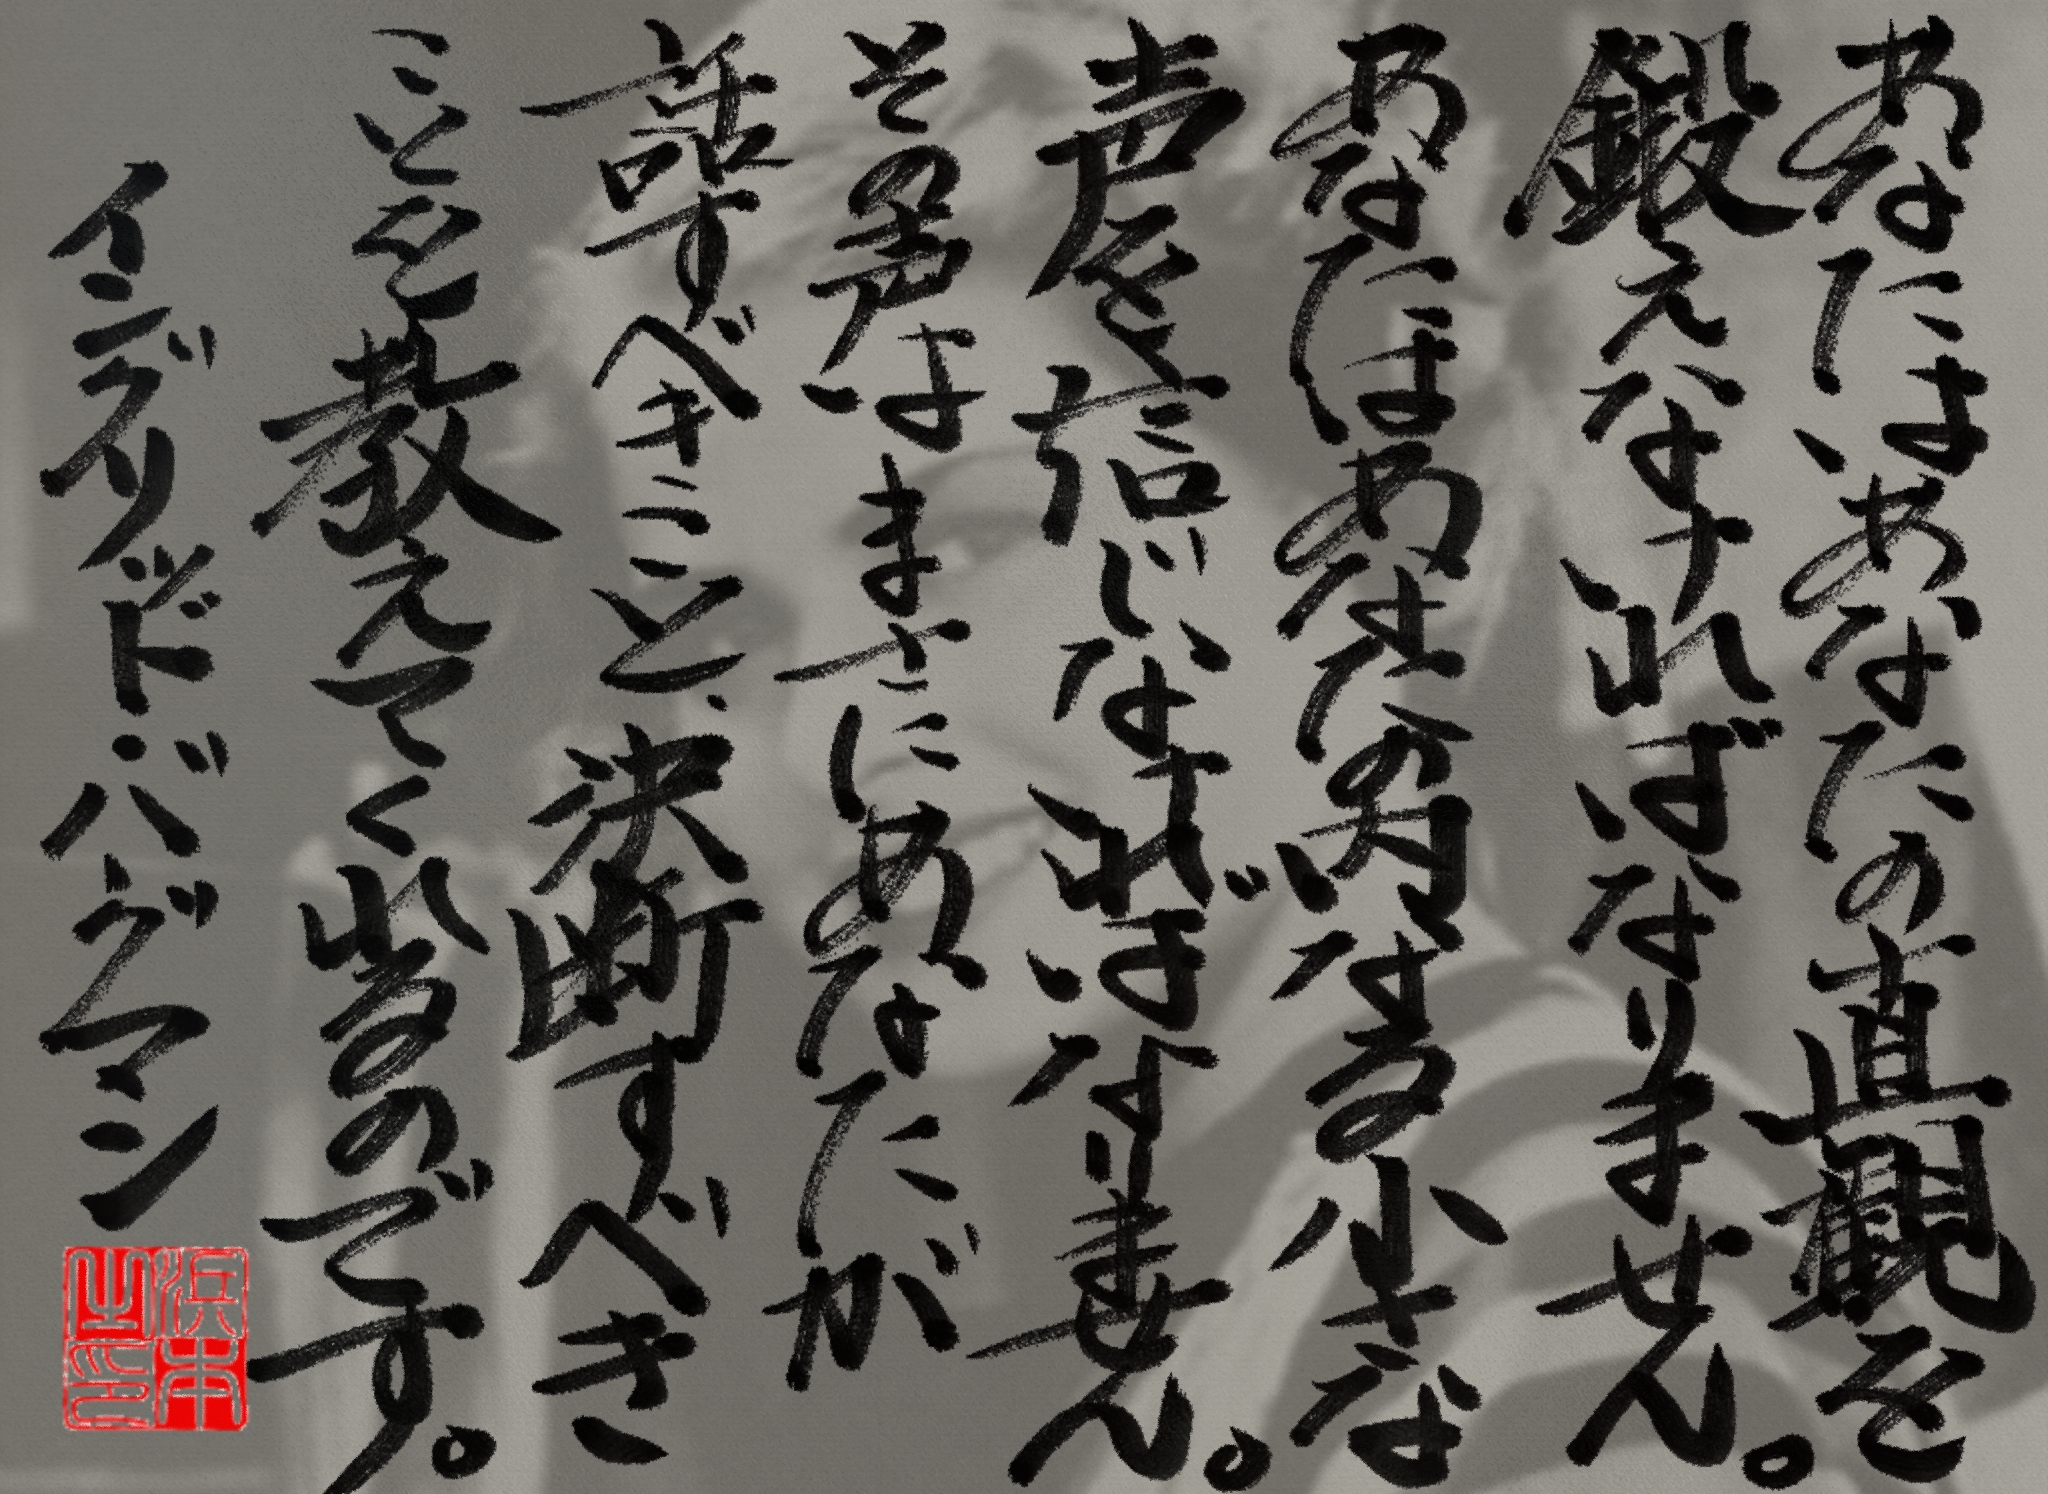 あなたはあなたの直観を
鍛えなければなりません。
あなたはあなたの内なる小さな
声を信じなければなりません。
その声はまさにあなたが
話すべきこと、決断すべき
ことを教えてくれるのです。
イングリッド・バーグマン
浜本
之印